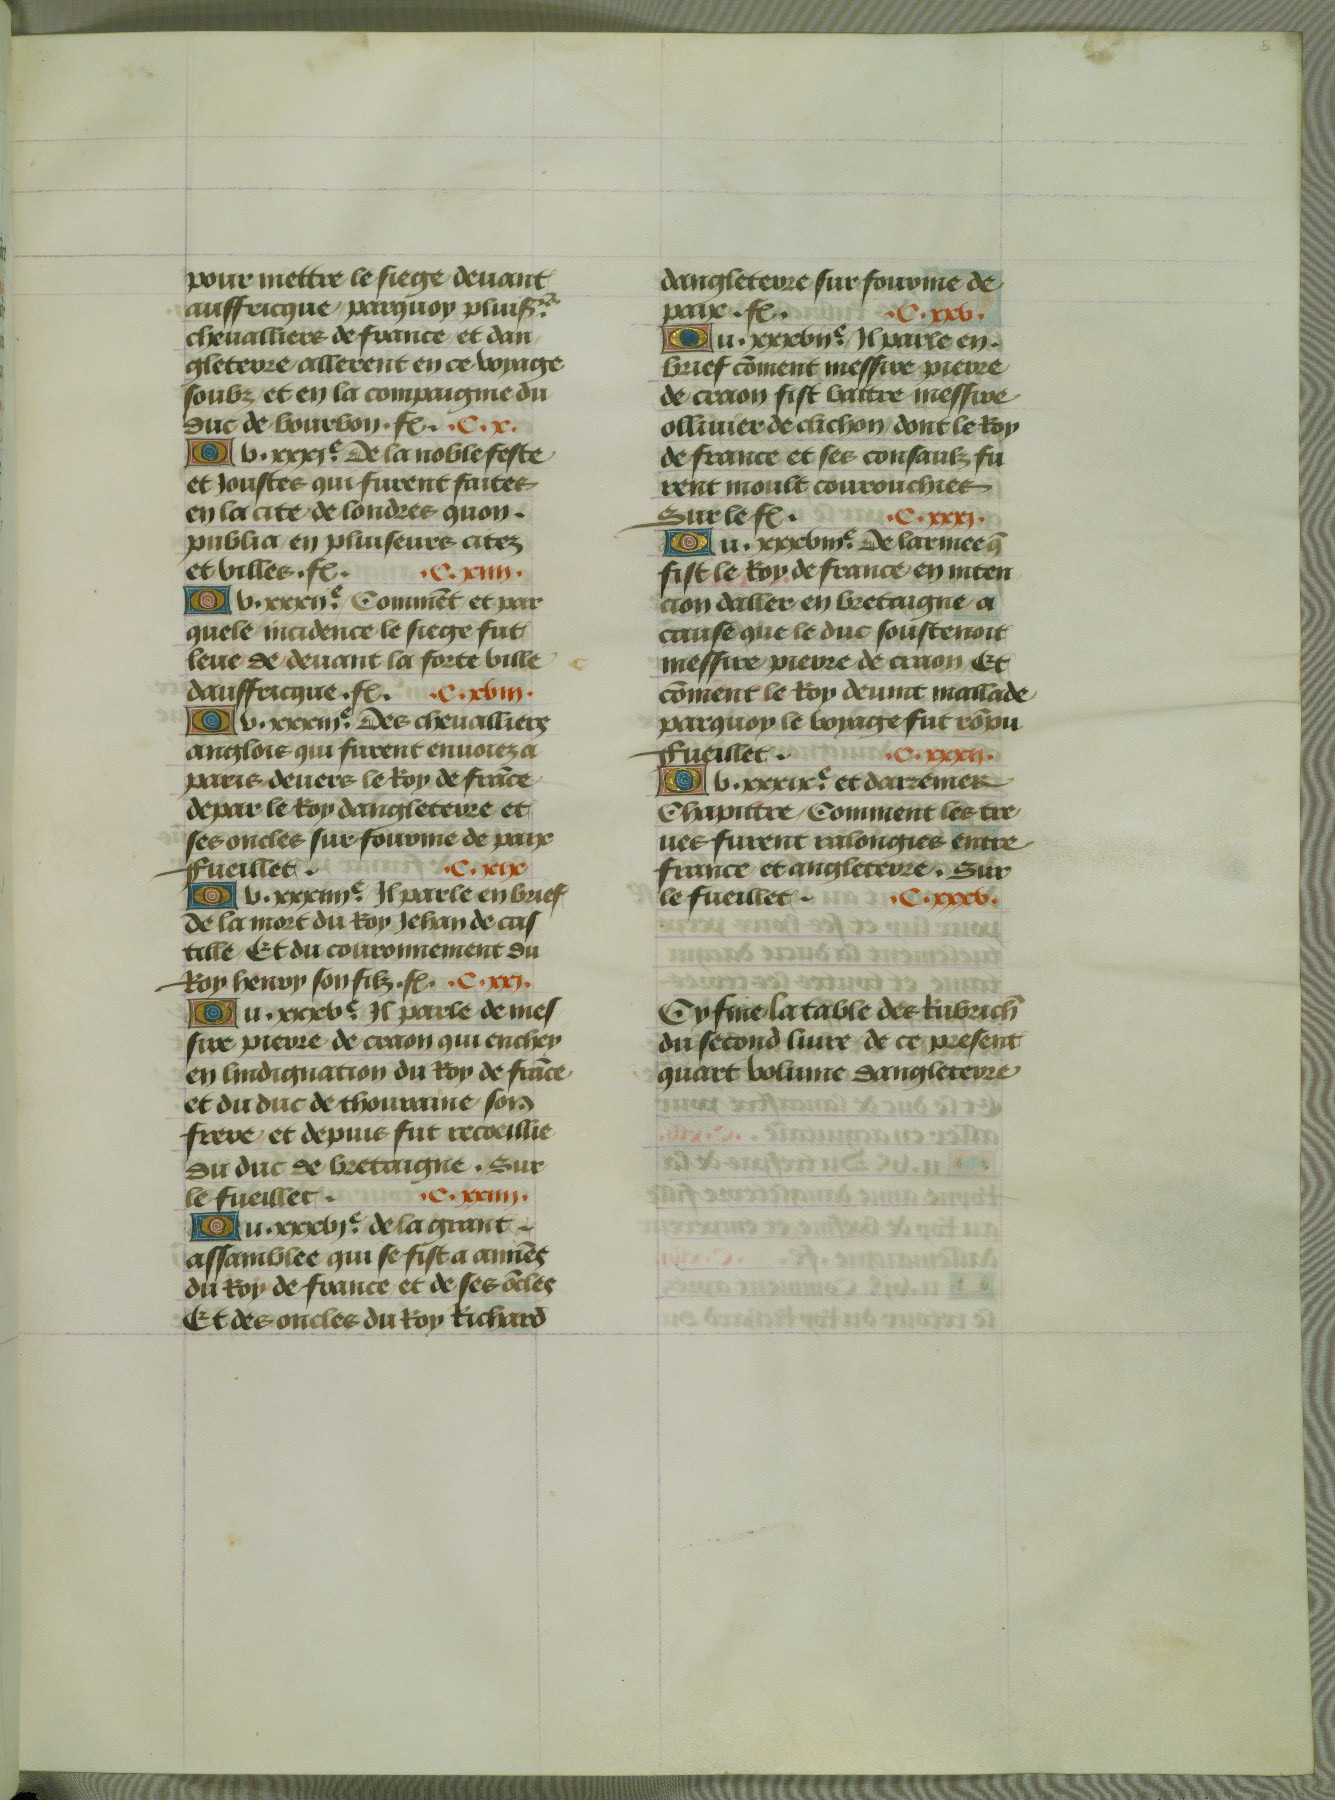 5
pour mettre le siege deuant
auffricque parquoy pluisrs
cheualliers de france et dan
gleterre allerent en ce voyage
soubz et en la compaignie du
duc de bourbon . fo . .C.x.
Ou .xxxie. De la noble feste
et Joustes qui furent faites
en la cite de londres quon .
publia en pluiseurs citez
et villes . fo . .C.xiiii.
Ou .xxxiie. Comment et par
quele incidence le siege fut
leue de deuant la forte ville
dauffricque . fo . .C.xviii.
Ou .xxxiiie. Des cheualliers
anglois qui furent enuoiez a
paris deuers le Roy de frāce
depar le Roy dangleterre et
ses oncles sur fourme de paix
ffueillet . .C.xix
Ou .xxxiiiie. Il parle en brief
de la mort du Roy Jehan de cas
tille Et du couronnement du
Roy henry son filz . fo . .C.xxi.
Ou .xxxve. Il parle de mes
sire pierre de craon qui enchey
en lindignation du Roy de frāce
et du duc de thouraine son
frere et depuis fut recoeillie
du duc de bretaigne . Sur
le fueillet . .C.xxiiii.
Ou .xxxvie. de la grant
assamblee qui se fist a amiēs
du Roy de france et de ses ōcles
Et des oncles du Roy Richard
dangleterre sur fourme de
paix . fo . .C.xxv.
Ou .xxxviie. Il parle en .
brief cōment messire pierre
de craon fist battre messire
ollivier de clichon dont le Roy
de france et ses consaulz fu
rent moult courouchies
Sur le fo . .C.xxxi.
Ou .xxxviiie. De larmee q̄
fist le Roy de france en inten
cion daller en bretaigne a
cause que le duc soustenoit
messire pierre de craon Et
cōment le Roy deuint mallade
parquoy le voyage fut rōpu
ffueillet . .C.xxxii.
Ou .xxxixe. et darremer
Chapittre Comment les tre
ues furent ralongies entre
france et angleterre . Sur
le fueillet . .C.xxxv.
Cy fine la table des Rubrich̄
du second liure de ce present
quart volume dangleterre